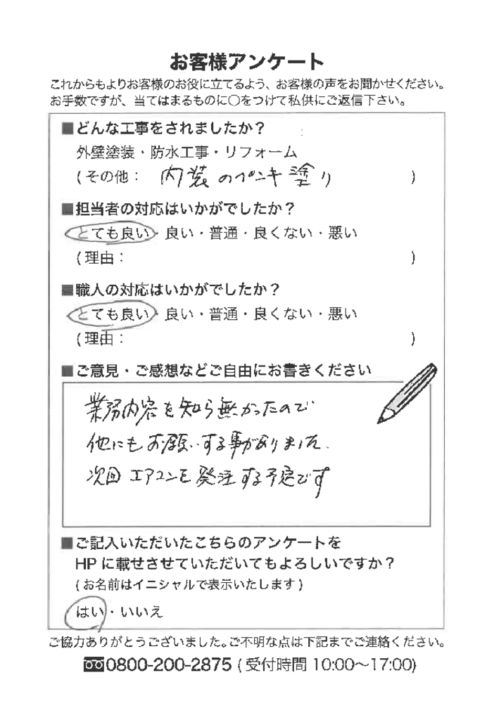 お客様アンケート
これからもよりお客様のお役に立てるよう、お客様の声をお聞かせください。
お手数ですが、当てはまるものに○をつけて私供にご返信下さい。
■どんな工事をされましたか？
外壁塗装・防水工事・リフォーム
(その他： 内装のペンキ塗り )
■担当者の対応はいかがでしたか？
とても良い・良い・普通・良くない・悪い
(理由： )
■職人の対応はいかがでしたか？
とても良い・良い・普通・良くない・悪い
(理由： )
■ご意見・ご感想などご自由にお書きください
業務内容を知ら無かったので
他にもお願いする事がありました.
次回エアコンを発注する予定です
■ご記入いただいたこちらのアンケートを
HPに載せさせていただいてもよろしいですか？
(お名前はイニシャルで表示いたします)
はい・いいえ
ご協力ありがとうございました。ご不明な点は下記までご連絡ください。
0800-200-2875 (受付時間 10:00～17:00)